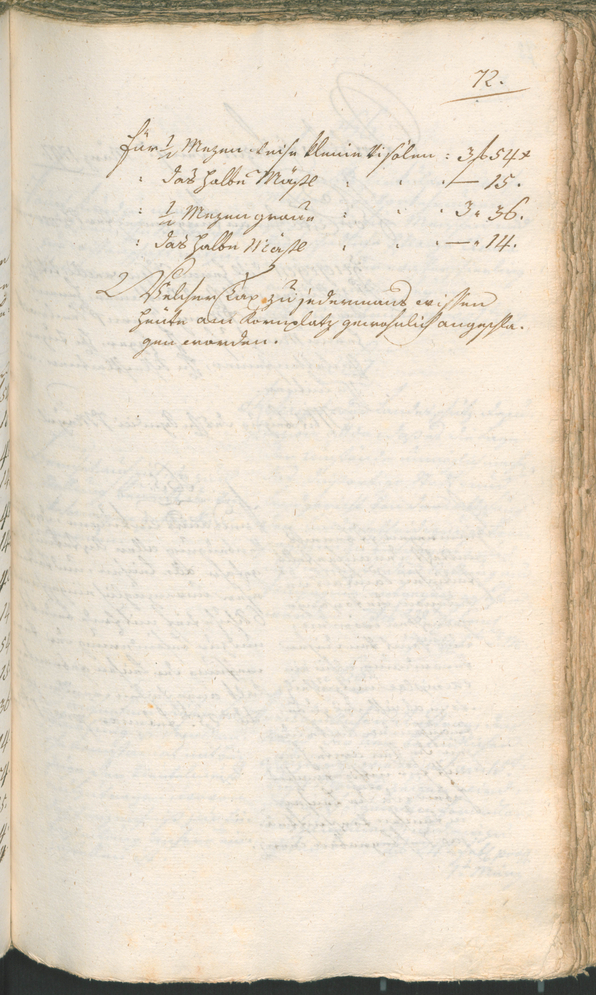 72.
für ½ Mezen weise kleine Fisolen : 3 f 54 x
" das halbe Mäßl " " " — 15.
: ½ Mezen graue : " " 3 " 36.
: das halbe Mäßl " " " — " 14.
zu jedermans wissen
heüte am Kornplatz gewohnlich angeschla-
gen worden.